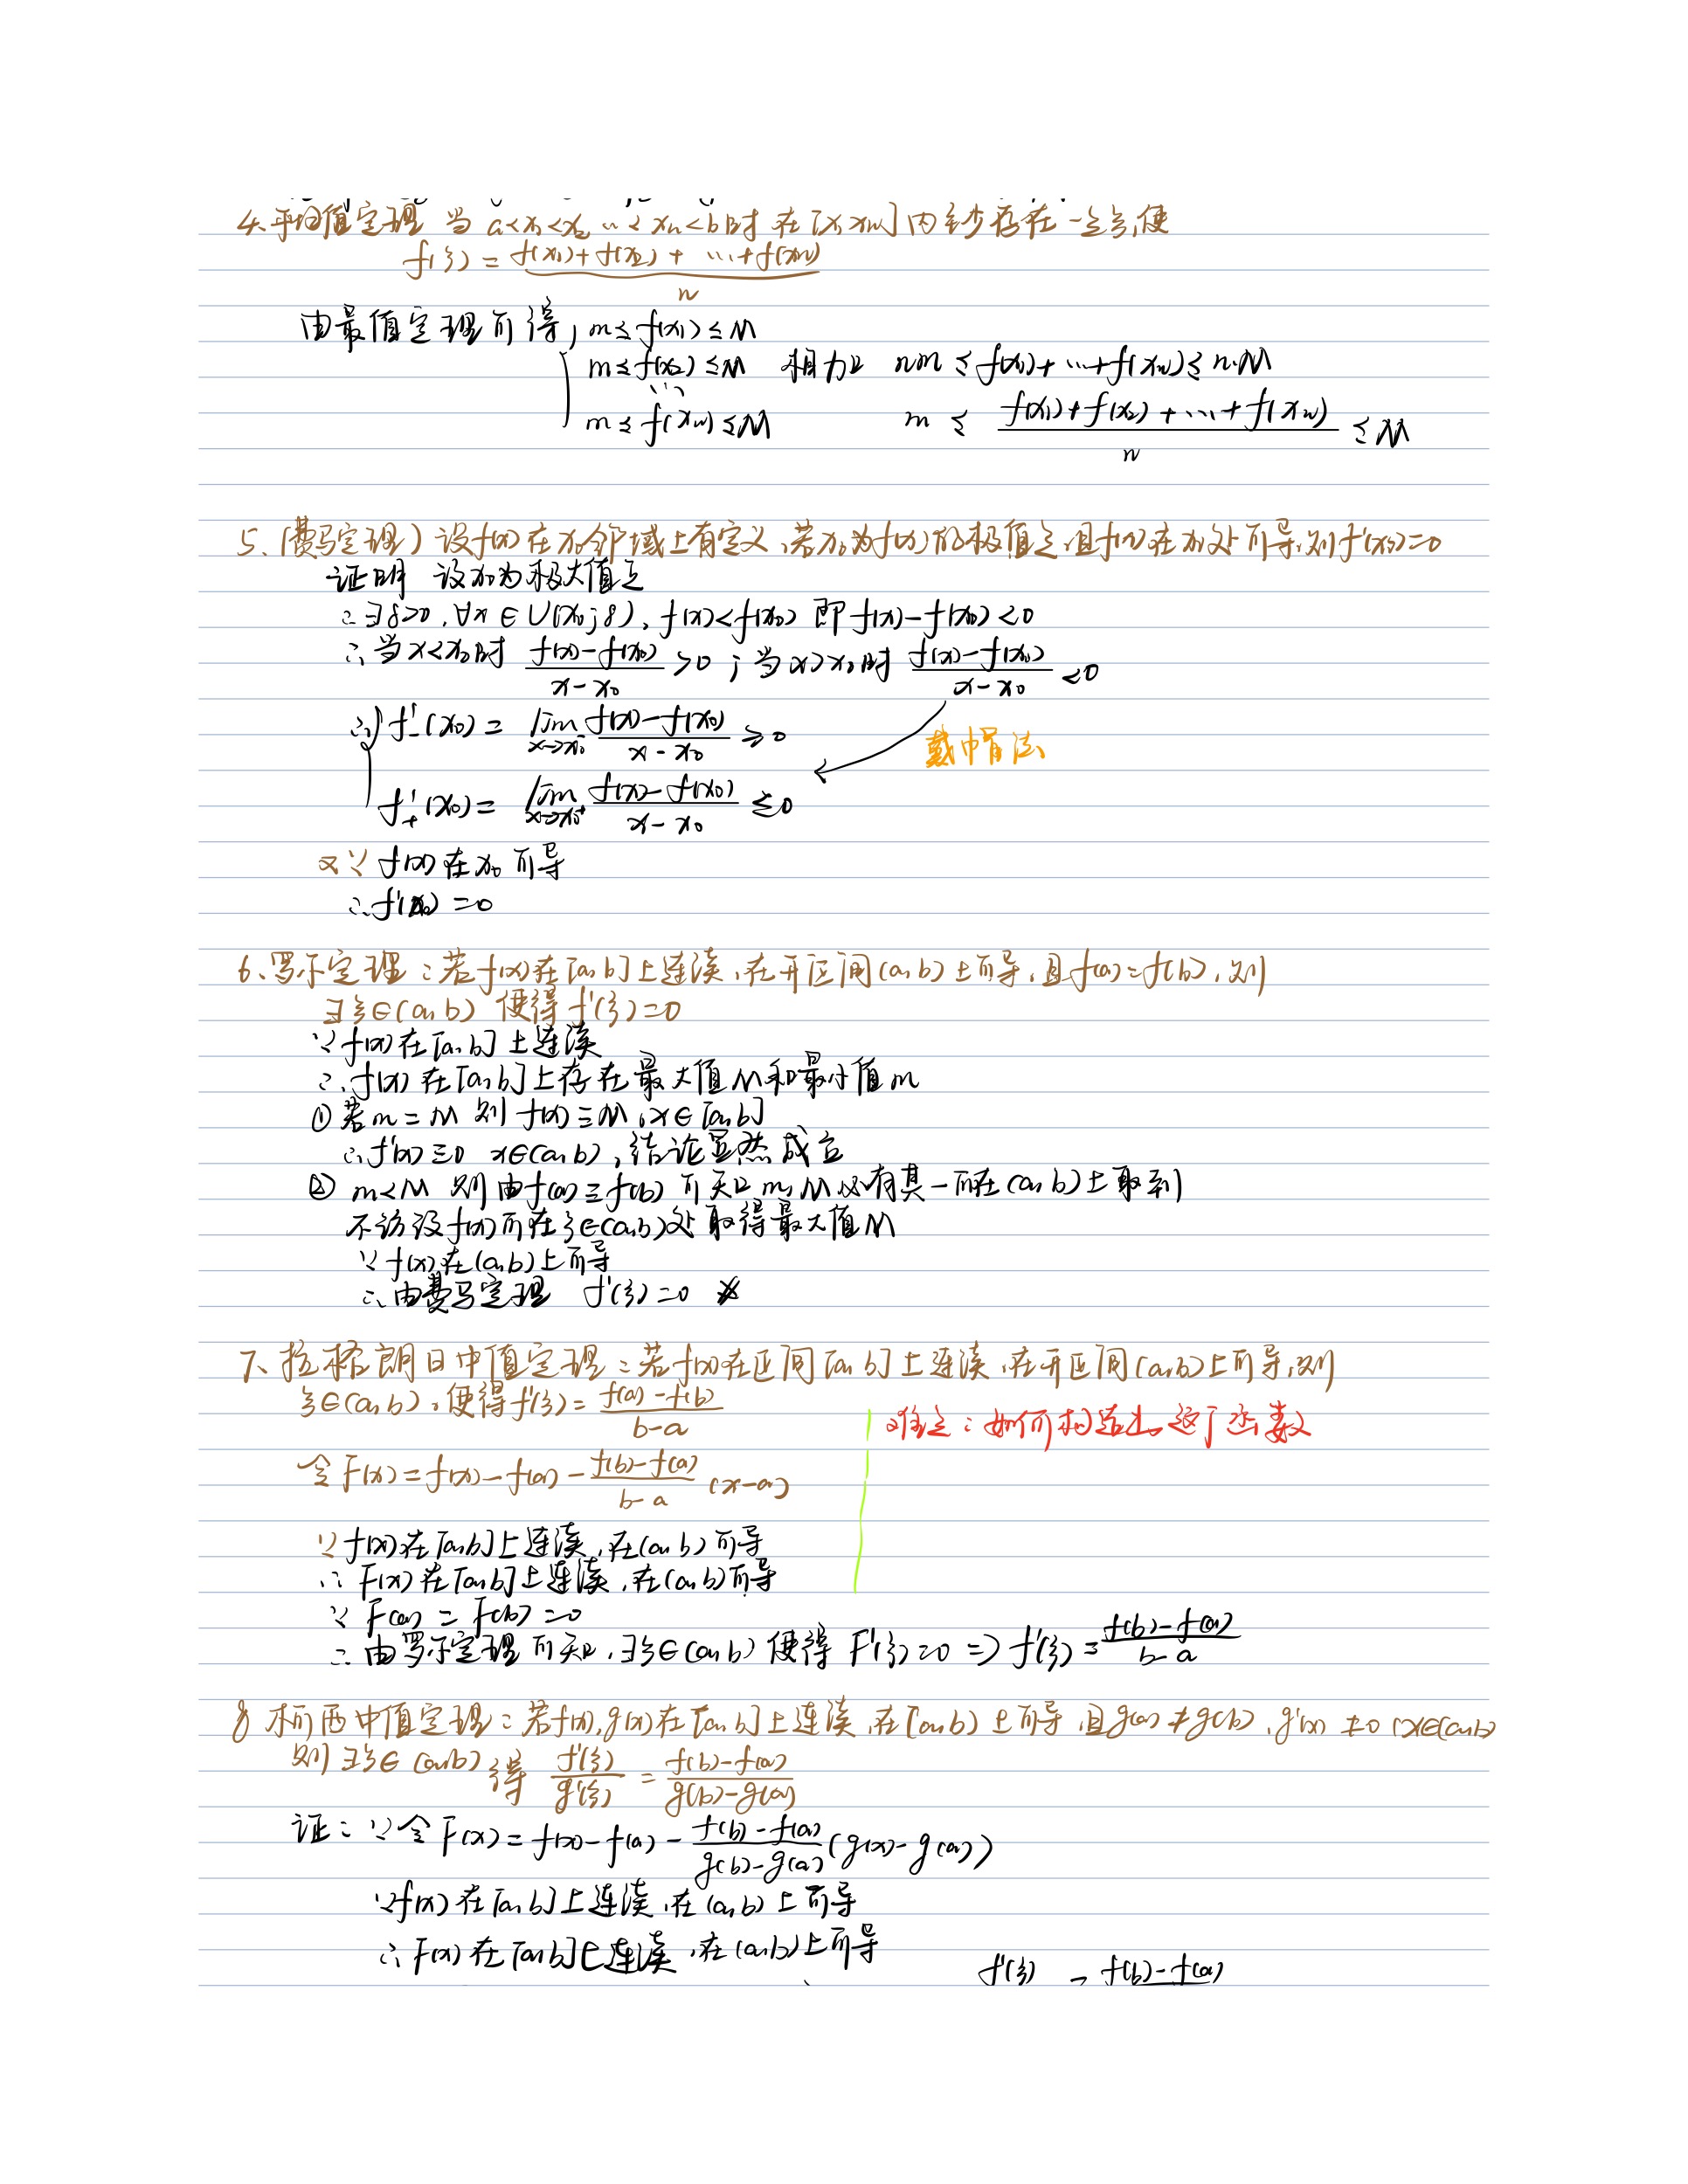 4、平均值定理 当 a<x₁<x₂…<xₙ<b时 在[x₁,xₙ]内至少存在一点ξ,使
f(ξ) = (f(x₁)+f(x₂)+…+f(xₙ))/n
由最值定理可得 { m≤f(x₁)≤M
m≤f(x₂)≤M 相加 nm≤f(x₁)+…+f(xₙ)≤n·M
…
m≤f(xₙ)≤M m ≤ (f(x₁)+f(x₂)+…+f(xₙ))/n ≤M
5、(费马定理) 设f(x)在x₀邻域上有定义,若x₀为f(x)的极值点,且f(x)在x₀处可导,则f'(x₀)=0
证明 设x₀为极大值点
∴∃δ>0,∀x∈U(x₀;δ),f(x)<f(x₀) 即 f(x)-f(x₀)<0
∴当x<x₀时 (f(x)-f(x₀))/(x-x₀) >0;当x>x₀时 (f(x)-f(x₀))/(x-x₀) <0
∴{ f'₋(x₀) = lim x→x₀⁻ (f(x)-f(x₀))/(x-x₀) ≥0
戴帽法
f'₊(x₀) = lim x→x₀⁺ (f(x)-f(x₀))/(x-x₀) ≤0
又∵ f(x)在x₀可导
∴f'(x₀)=0
6、罗尔定理:若f(x)在[a,b]上连续,在开区间(a,b)上可导,且f(a)=f(b),则
∃ξ∈(a,b) 使得 f'(ξ)=0
∵f(x)在[a,b]上连续
∴f(x)在[a,b]上存在最大值M和最小值m
①若m=M 则 f(x)≡M,x∈[a,b]
∴f'(x)≡0 x∈(a,b),结论显然成立
② m<M 则由f(a)=f(b)可知 m,M必有其一可在(a,b)上取到
不访设f(x)可在ξ∈(a,b)处取得最大值M
∵f(x)在(a,b)上可导
∴由费马定理 f'(ξ)=0 ※
7、拉格朗日中值定理:若f(x)在区间[a,b]上连续,在开区间(a,b)上可导,则
ξ∈(a,b),使得f'(ξ)=(f(a)-f(b))/(b-a)
难点:如何构造出这个函数
令F(x)=f(x)-f(a)-(f(b)-f(a))/(b-a) (x-a)
∵f(x)在[a,b]上连续,在(a,b)可导
∴F(x)在[a,b]上连续,在(a,b)可导
∵F(a)=F(b)=0
∴由罗尔定理可知,∃ξ∈(a,b)使得 F'(ξ)=0 ⇒ f'(ξ)=(f(b)-f(a))/(b-a)
8 柯西中值定理:若f(x),g(x)在[a,b]上连续,在[a,b)上可导,且g(a)≠g(b),g'(x)≠0 (x∈(a,b)
则∃ξ∈(a,b)得 f'(ξ)/g'(ξ) = (f(b)-f(a))/(g(b)-g(a))
证:∵令F(x)=f(x)-f(a)-(f(b)-f(a))/(g(b)-g(a)) (g(x)-g(a))
∵f(x)在[a,b]上连续,在(a,b)上可导
∴F(x)在[a,b]上连续,在(a,b)上可导
f'(ξ) = f(b)-f(a)